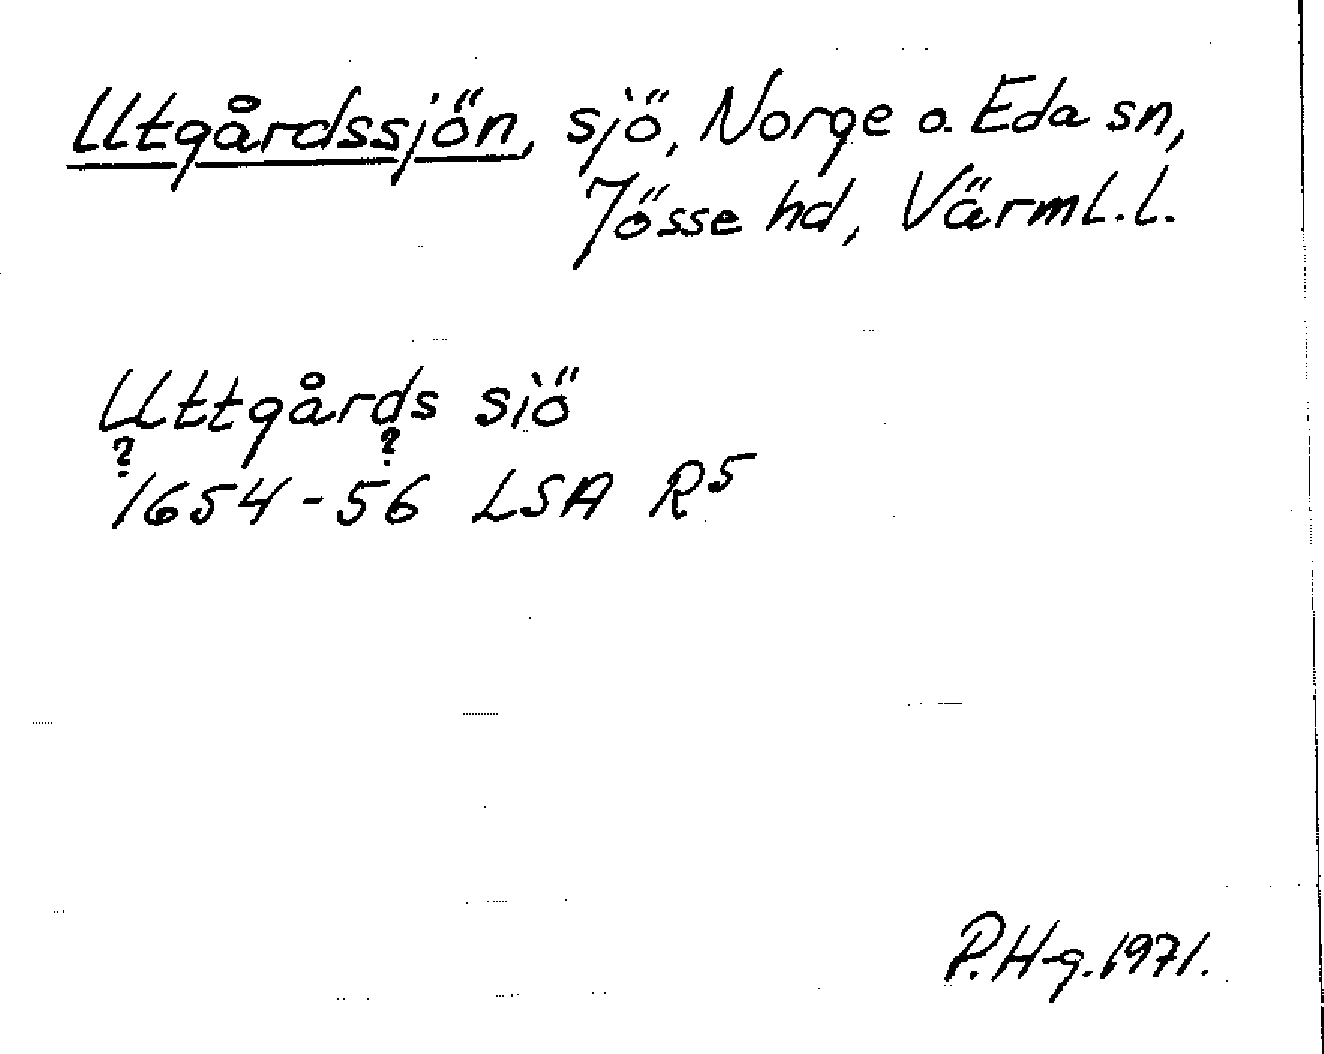 Utgårdssjön, sjö, Norge o. Eda sn,
Jösse hd, Värml. l.
Uttgårds siö
? ?
1654-56 LSA R5
P.H-g. 1971.